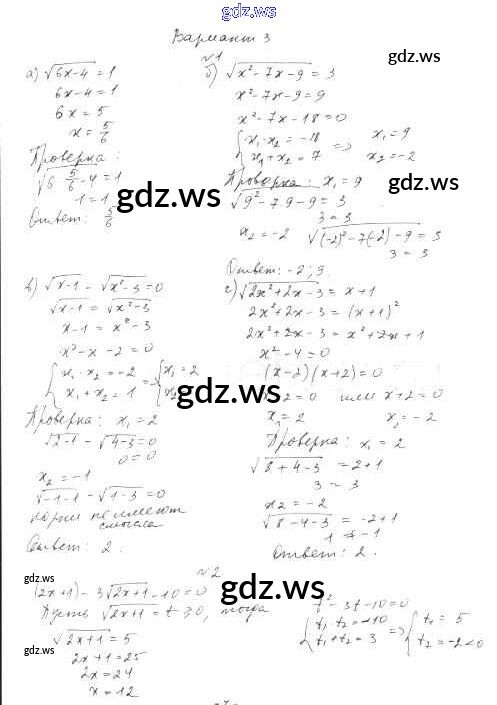 gdz.ws
Вариант 3
gdz.ws
№1
а) √(6x-4) = 1
6x-4 = 1
6x = 5
x = 5/6
Проверка:
√(6 · 5/6 - 4) = 1
1 = 1
Ответ: 5/6
б) √(x²-7x-9) = 3
x² - 7x - 9 = 9
x² - 7x - 18 = 0
{ x₁·x₂ = -18
x₁+x₂ = 7 => x₁ = 9
x₂ = -2
gdz.ws
gdz.ws
Проверка: x₁ = 9
√(9² - 7·9 - 9) = 3
3 = 3
x₂ = -2 √((-2)² - 7(-2) - 9) = 3
3 = 3
Ответ: -2; 9.
в) √(x-1) - √(x²-3) = 0
√(x-1) = √(x²-3)
x-1 = x²-3
x² - x - 2 = 0
{ x₁·x₂ = -2
x₁+x₂ = 1 => { x₁ = 2
x₂
gdz.ws
Проверка: x₁ = 2
√(2-1) - √(4-3) = 0
0 = 0
x₂ = -1
√(-1-1) - √(1-3) = 0
корни не имеют
смысла
Ответ: 2.
г) √(2x²+2x-3) = x+1
2x²+2x-3 = (x+1)²
2x²+2x-3 = x²+2x+1
x² - 4 = 0
(x-2)(x+2) = 0
2=0 или x+2=0
x₁ = 2 x₂ = -2
gdz.ws
Проверка: x₁ = 2
√(8+4-3) = 2+1
3 = 3
x₂ = -2
√(8-4-3) = -2+1
1 ≠ -1
Ответ: 2.
gdz.ws
№2
gdz.ws
gdz.ws
(2x+1) - 3√(2x+1) - 10 = 0
Пусть √(2x+1) = t ≥ 0, тогда
t² - 3t - 10 = 0
{ t₁·t₂ = -10
t₁+t₂ = 3 => { t₁ = 5
t₂ = -2 < 0
√(2x+1) = 5
2x+1 = 25
2x = 24
x = 12
gdz.ws
gdz.ws
gdz.ws